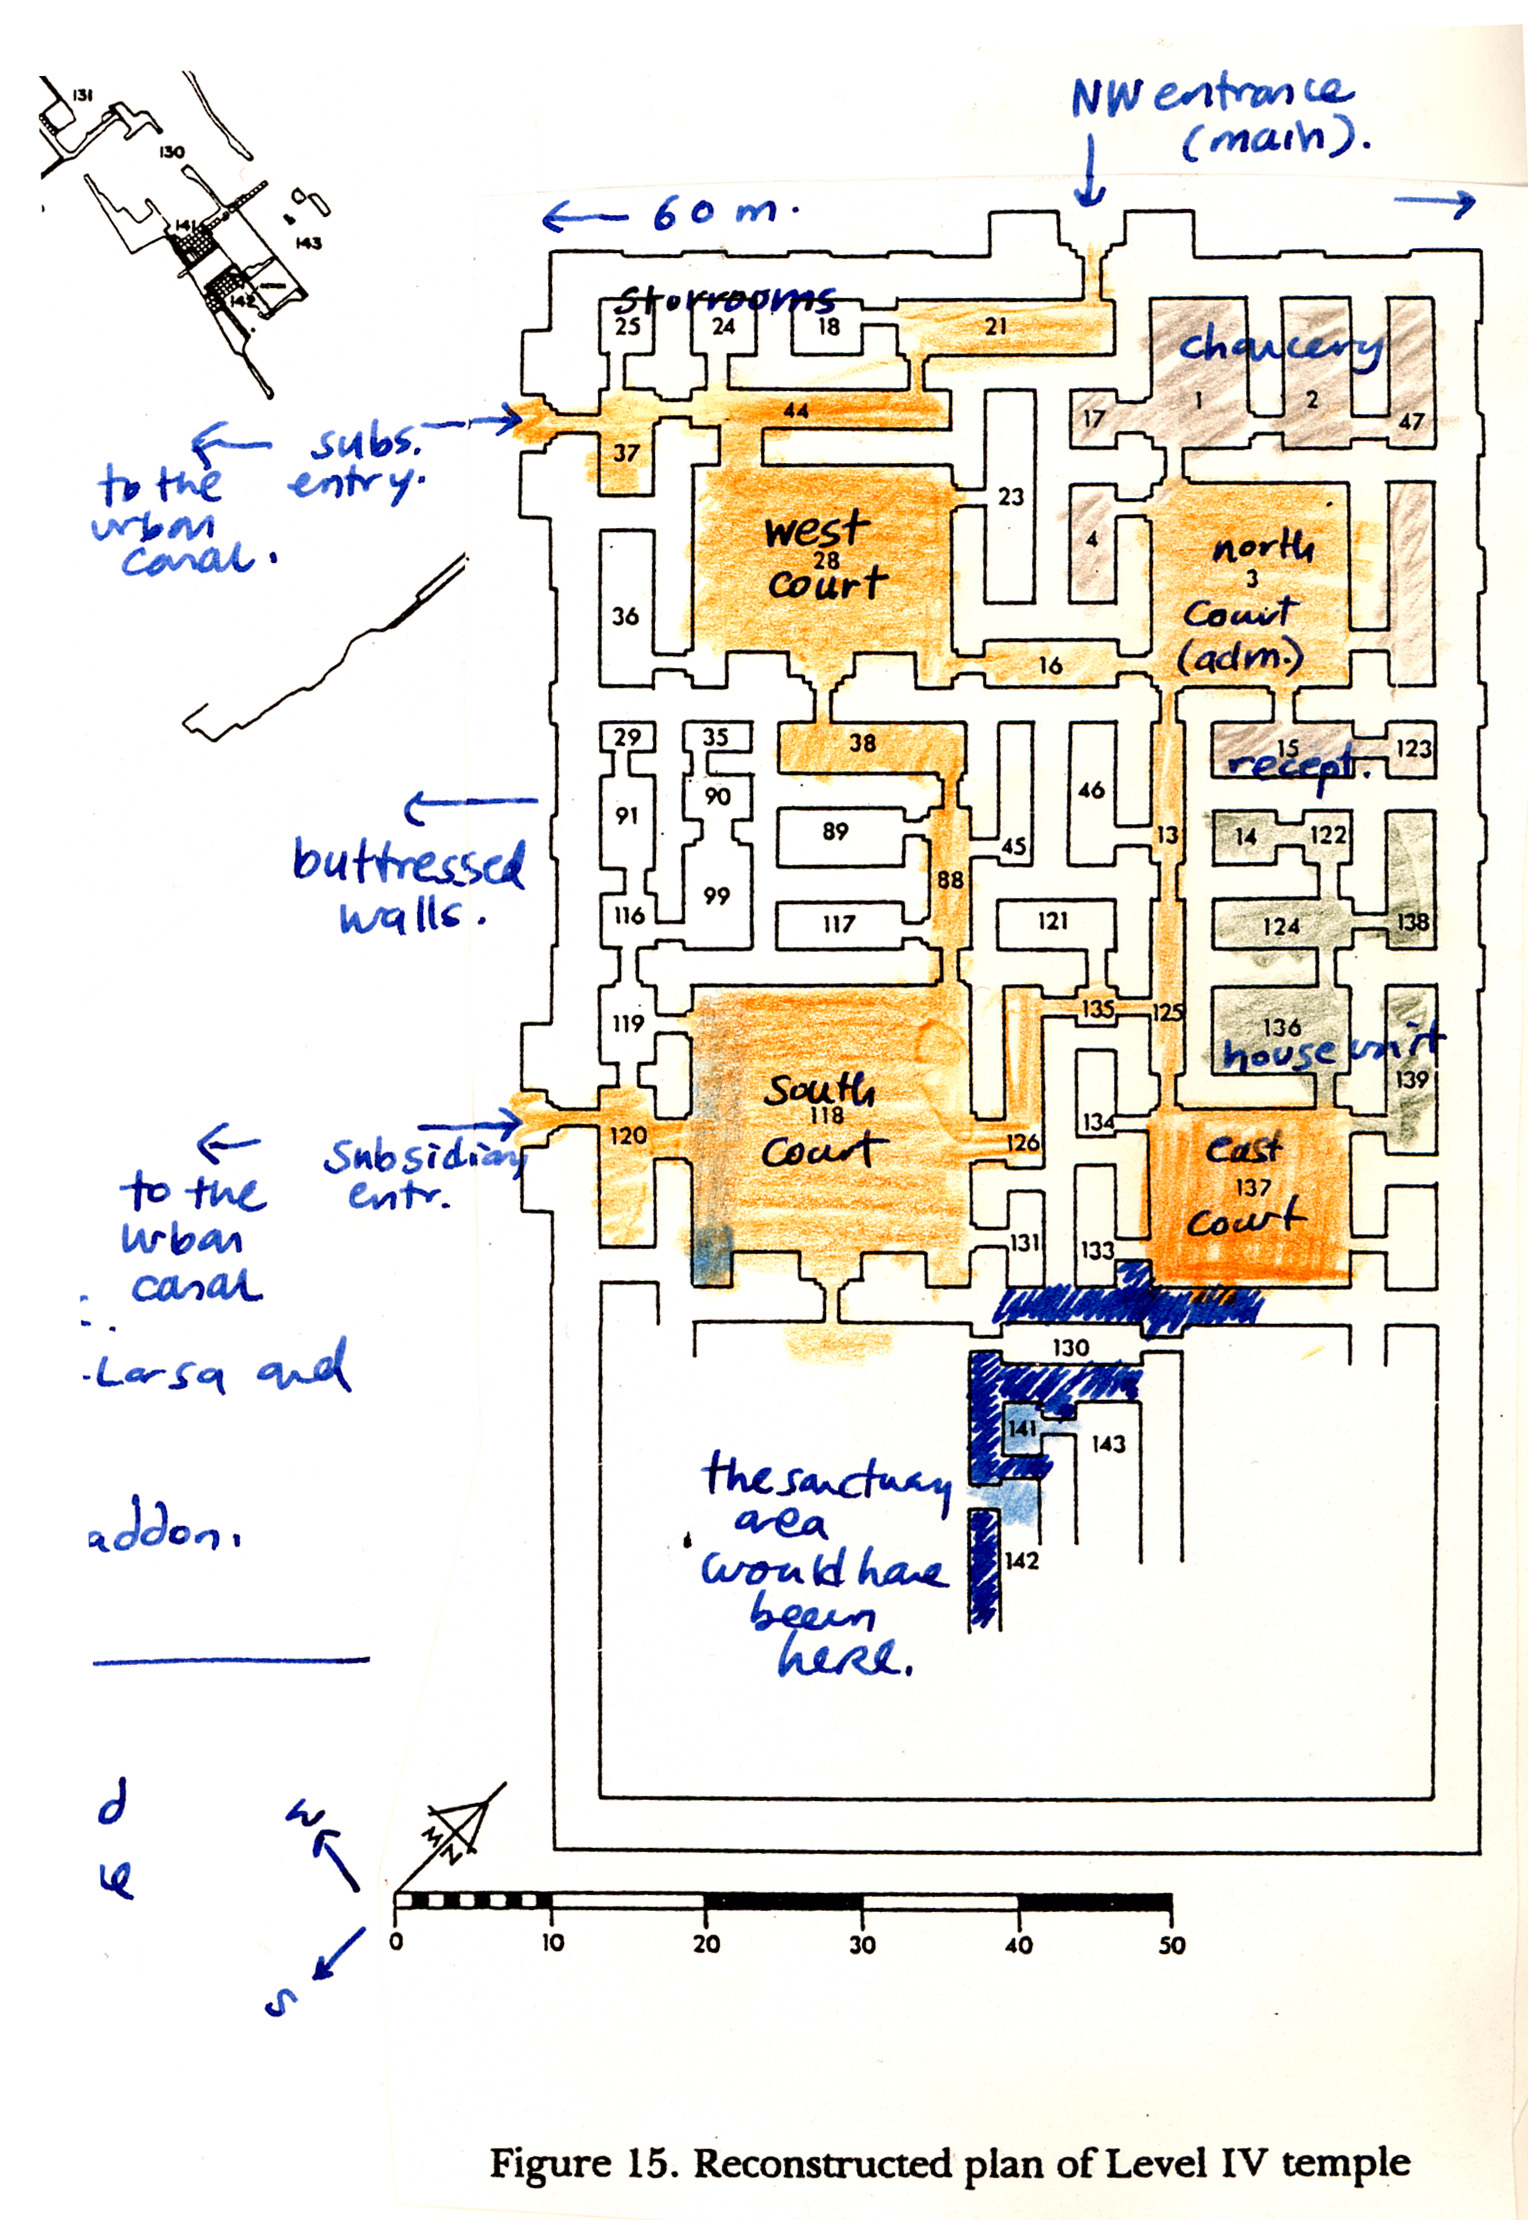 131
130
141
143
142
NW entrance
(main).
60 m.
storrooms
25
24
18
21
chancery
17
1
2
47
44
37
subs.
entry.
to the
urban
canal.
23
4
west
28
court
north
3
Court
(adm.)
36
16
29
35
38
46
15
recept.
123
91
90
89
45
13
14
122
buttressed
walls.
99
88
116
117
121
124
138
119
135
125
136
house unit
139
South
118
Court
134
120
126
East
137
Court
Subsidiary
entr.
to the
urban
canal
131
133
Larsa and
130
141
143
the sanctuary
area
would have
been
here.
142
addon.
d
W
N
S
0
10
20
30
40
50
Figure 15. Reconstructed plan of Level IV temple